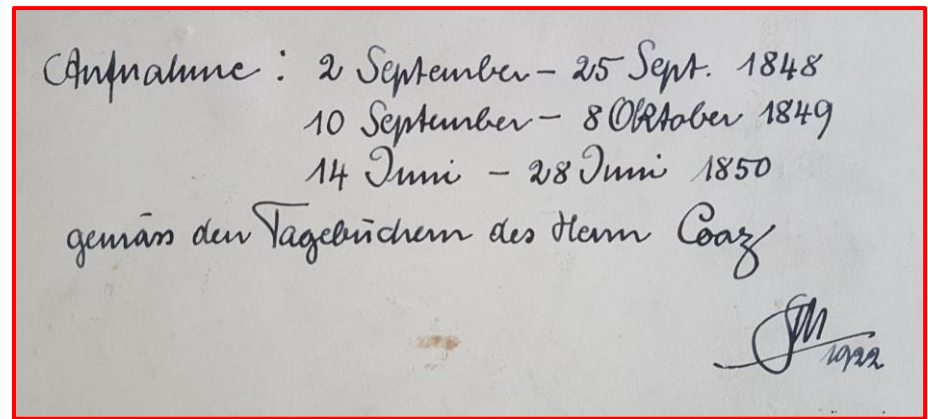 Aufnahme: 2 September – 25 Sept. 1848
10 September – 8 Oktober 1849
14 Juni – 28 Juni 1850
gemäss den Tagebüchern des Herrn Coaz
1922